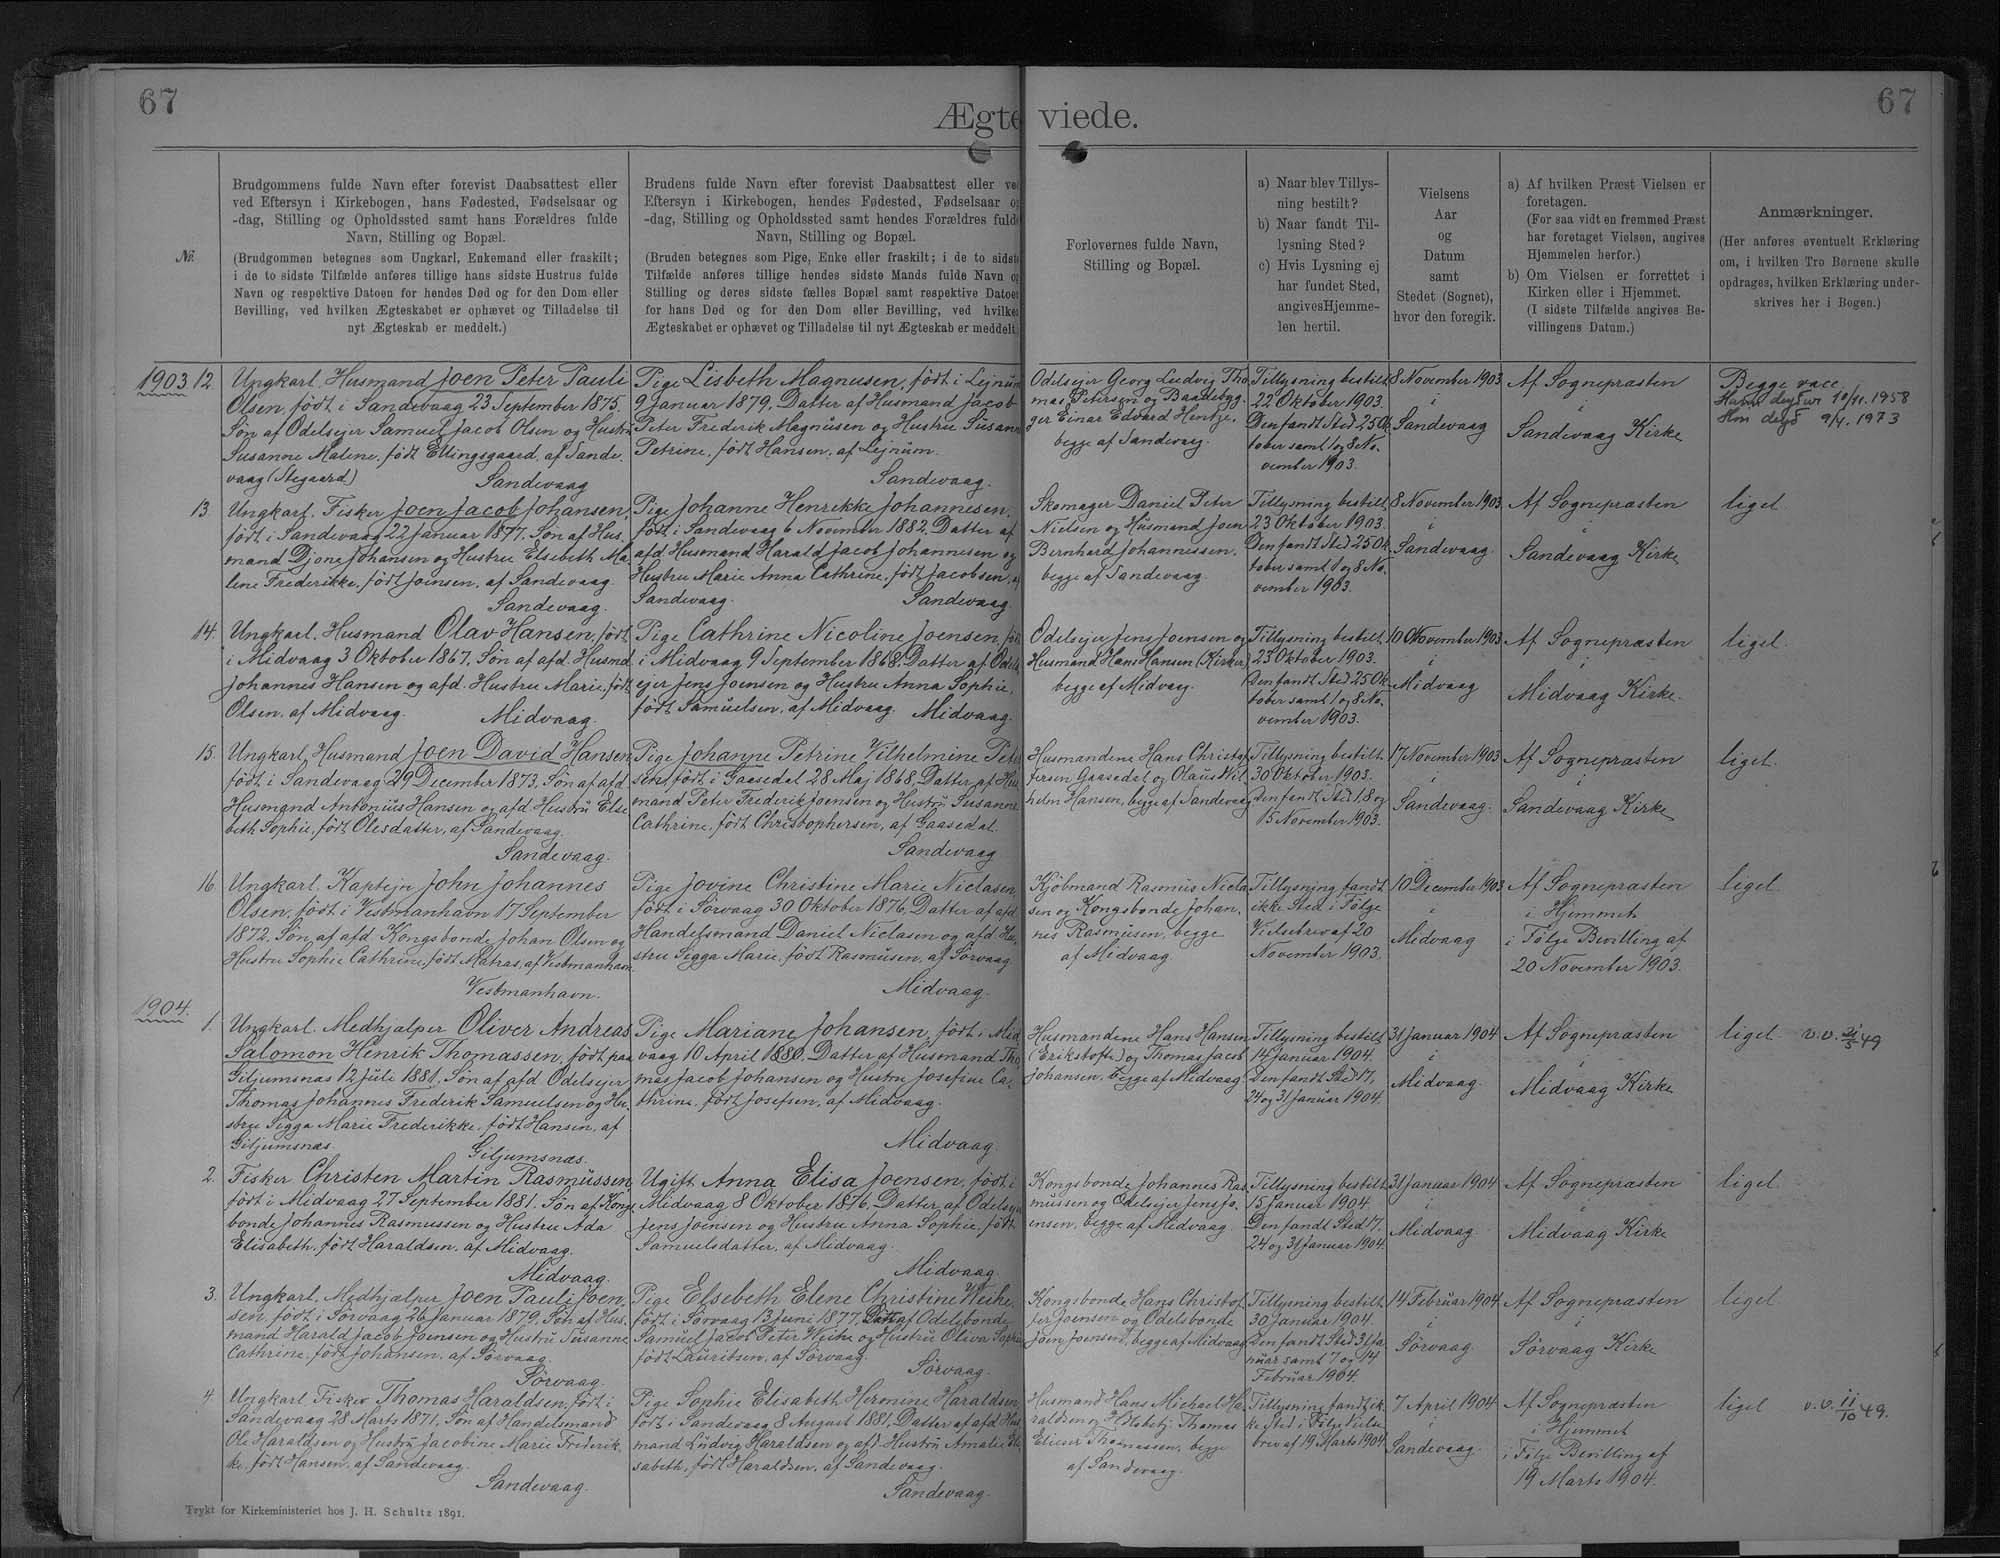 67
67
Ægte viede.
№
Brudgommens fulde Navn efter forevist Daabsattest eller
ved Eftersyn i Kirkebogen, hans Fødested, Fødselsaar og
-dag, Stilling og Opholdssted samt hans Forældres fulde
Navn, Stilling og Bopæl.
(Brudgommen betegnes som Ungkarl, Enkemand eller fraskilt;
i de to sidste Tilfælde anføres tillige hans sidste Hustrus fulde
Navn og respektive Datoen for hendes Død og for den Dom eller
Bevilling, ved hvilken Ægteskabet er ophævet og Tilladelse til
nyt Ægteskab er meddelt.)
Brudens fulde Navn efter forevist Daabsattest eller ve
Eftersyn i Kirkebogen, hendes Fødested, Fødselsaar o
-dag, Stilling og Opholdssted samt hendes Forældres fuld
Navn, Stilling og Bopæl.
(Bruden betegnes som Pige, Enke eller fraskilt; i de to sidst
Tilfælde anføres tillige hendes sidste Mands fulde Navn o
Stilling og deres sidste fælles Bopæl samt respektive Datoe
for hans Død og for den Dom eller Bevilling, ved hvilke
Ægteskabet er ophævet og Tilladelse til nyt Ægteskab er meddelt.
Forlovernes fulde Navn,
Stilling og Bopæl.
a) Naar blev Tillys-
ning bestilt?
b) Naar fandt Til-
lysning Sted?
c) Hvis Lysning ej
har fundet Sted,
angives Hjemme-
len hertil.
Vielsens
Aar
og
Datum
samt
Stedet (Sognet),
hvor den foregik.
a) Af hvilken Præst Vielsen er
foretagen.
(For saa vidt en fremmed Præst
har foretaget Vielsen, angives
Hjemmelen herfor.)
b) Om Vielsen er forrettet i
Kirken eller i Hjemmet.
(I sidste Tilfælde angives Be-
villingens Datum.)
Anmærkninger.
(Her anføres eventuelt Erklæring
om, i hvilken Tro Børnene skulle
opdrages, hvilken Erklæring under-
skrives her i Bogen.)
1903 12.
Ungkarl. Husmand Joen Peter Pauli
Olsen, født i Sandevaag 23 September 1875.
Søn af Odelsejer Samuel Jacob Olsen og Hustru
Susanne Malene, født Ellingsgaard, af Sande-
vaag (Stegaard)
Sandevaag
Pige Lisbeth Magnusen, født i Lejnum
9 Januar 1879. Datter af Husmand Jacob
Peter Frederik Magnusen og Hustru Susann
Petrine, født Hansen, af Lejnum.
Sandevaag.
Odelsejer Georg Ludvig Tho
mas Petersen og Baadebyg-
ger Einar Edvard Hentze,
begge af Sandevaag.
Tillysning bestilt
22 Oktober 1903.
Den fandt Sted 25 Ok
tober samt 1 og 8 No-
vember 1903.
8 November 1903
i
Sandevaag
Af Sognepræsten
i
Sandevaag Kirke
Begge vacc.
Hann deyður 10/11.1958
Hon deyð 9/4.1973
13.
Ungkarl. Fisker Joen Jacob Johansen,
født i Sandevaag 22 Januar 1877. Søn af Hus-
mand Djone Johansen og Hustru Elsebeth Ma-
lene Frederikke, født Joensen, af Sandevaag.
Sandevaag.
Pige Johanne Henrikke Johannesen,
født i Sandevaag 6 November 1882. Datter af
afd Husmand Harald Jacob Johannesen og
Hustru Marie Anna Cathrine, født Jacobsen, af
Sandevaag.
Sandevaag.
Skomager Daniel Peter
Nielsen og Husmand Joen
Bernhard Johannessen,
begge af Sandevaag.
Tillysning bestilt
23 Oktober 1903.
Den fandt Sted 25 Ok-
tober samt 1 og 8 No-
vember 1903.
8 November 1903
i
Sandevaag.
Af Sognepræsten
i
Sandevaag Kirke
ligel
14.
Ungkarl. Husmand Olav Hansen, født
i Midvaag 3 Oktober 1867. Søn af afd. Husmd
Johannes Hansen og afd. Hustru Marie, født
Olsen, af Midvaag.
Midvaag.
Pige Cathrine Nicoline Joensen, født
i Midvaag 9 September 1868. Datter af Odels
ejer Jens Joensen og Hustru Anna Sophie,
født Samuelsen, af Midvaag.
Midvaag.
Odelsejer Jens Joensen og
Husmand Hans Hansen (Kirker)
begge af Midvaag.
Tillysning bestilt
23 Oktober 1903.
Den fandt Sted 25 Ok
tober samt 1 og 8 No-
vember 1903.
10 November 1903
i
Midvaag
Af Sognepræsten
i
Midvaag Kirke.
ligel.
15.
Ungkarl. Husmand Joen David Hansen
født i Sandevaag 29 December 1873. Søn af afd.
Husmand Antonius Hansen og afd. Hustru Else
beth Sophie, født Olesdatter, af Sandevaag.
Sandevaag.
Pige Johanne Petrine Vilhelmine Peter
sen, født i Gaasedal 28 Maj 1868. Datter af Hus
mand Peter Frederik Joensen og Hustru Susanne
Cathrine, født Christophersen, af Gaasedal.
Sandevaag
Husmandene Hans Christof
fersen Gaasedal og Olaus Wil-
helm Hansen, begge af Sandevaag
Tillysning bestilt
30 Oktober 1903.
Den fandt Sted 1, 8 og
15 November 1903.
17 November 1903
i
Sandevaag.
Af Sognepræsten
i
Sandevaag Kirke
ligel.
16.
Ungkarl. Kaptejn John Johannes
Olsen, født i Vestmanhavn 17 September
1872. Søn af afd. Kongsbonde Johan Olsen og
Hustru Sophie Cathrine, født Matras, af Vestmanhavn
Vestmanhavn.
Pige Jovine Christine Marie Niclasen,
født i Sörvaag 30 Oktober 1876. Datter af afd.
Handelsmand Daniel Niclasen og afd. Hu-
stru Sigga Marie, født Rasmusen, af Sörvaag
Midvaag.
Kjöbmand Rasmus Nicla
sen og Kongsbonde Johan-
nes Rasmusen, begge
af Midvaag
Tillysning fandt
ikke Sted i Følge
Vielsebrev af 20
November 1903.
10 December 1903
i
Midvaag
Af Sognepræsten
i Hjemmet
i Følge Bevilling af
20 November 1903.
ligel.
1904.
1.
Ungkarl. Medhjælper Oliver Andreas
Salomon Henrik Thomassen, født paa
Giljumsnæs 12 Juli 1881. Søn af afd Odelsejer
Thomas Johannes Frederik Samuelsen og Hu-
stru Sigga Marie Frederikke, født Hansen, af
Giljumsnæs
Giljumsnæs.
Pige Mariane Johansen, født i Mid
vaag 10 April 1880. Datter af Husmand Tho
mas Jacob Johansen og Hustru Josefine Ca-
thrine, født Josefsen, af Midvaag.
Midvaag.
Husmandene Hans Hansen
(Erikstoft) og Thomas Jacob
Johansen, begge af Midvaag
Tillysning bestilt
14 Januar 1904.
Den fandt Sted 17,
24 og 31 Januar 1904.
31 Januar 1904
i
Midvaag.
Af Sognepræsten
i
Midvaag Kirke
ligel v.v. 21/5 49
2.
Fisker Christen Martin Rasmussen
født i Midvaag 27 September 1881. Søn af Kongs
bonde Johannes Rasmussen og Hustru Ada
Elisabeth, født Haraldsen, af Midvaag.
Midvaag.
Ugift Anna Elisa Joensen, født i
Midvaag 8 Oktober 1876. Datter af Odelsejer
Jens Joensen og Hustru Anna Sophie, født
Samuelsdatter, af Midvaag.
Midvaag.
Kongsbonde Johannes Ras
mussen og Odelsejer Jens Jo-
ensen, begge af Midvaag.
Tillysning bestilt
15 Januar 1904.
Den fandt Sted 17.
24 og 31 Januar 1904.
31 Januar 1904
i
Midvaag.
Af Sognepræsten
i
Midvaag Kirke
ligel.
3.
Ungkarl. Medhjælper Joen Pauli Joen-
sen, født i Sörvaag 26 Januar 1879. Søn af Hus-
mand Harald Jacob Joensen og Hustru Susanne
Cathrine, født Johansen, af Sörvaag.
Sörvaag.
Pige Elsebeth Elene Christine Weihe,
født i Sørvaag 13 Juni 1877. Datter af Odelsbonde
Samuel Jacob Peter Weihe og Hustru Oliva Sophie
født Lauritsen, af Sørvaag.
Sørvaag.
Kongsbonde Hans Christof
fer Joensen og Odelsbonde
Joen Joensen, begge af Midvaag
Tillysning bestilt
30 Januar 1904.
Den fandt Sted 31 Ja
nuar samt 7 og 14
Februar 1904.
14 Februar 1904.
i
Sørvaag.
Af Sognepræsten
i
Sørvaag Kirke
ligel
4.
Ungkarl. Fisker Thomas Haraldsen, født i
Sandevaag 28 Marts 1871. Søn af Handelsmand
Ole Haraldsen og Hustru Jacobine Marie Frederik-
ke, født Hansen, af Sandevaag.
Sandevaag.
Pige Sophie Elisabeth Hermine Haraldsen,
født i Sandevaag 8 August 1881. Datter af afd Hus
mand Ludvig Haraldsen og afd. Hustru Amalie Eli
sabeth, født Haraldsen, af Sandevaag.
Sandevaag.
Husmand Hans Michael Ha
raldsen og Thomas
Elieser Thomassen, begge
af Sandevaag.
Tillysning fandt ik-
ke Sted i Følge Vielse
brev af 19 Marts 1904.
7 April 1904
i
Sandevaag.
Af Sognepræsten
i Hjemmet
i Følge Bevilling af
19 Marts 1904.
ligel v.v. 11/10 49.
Trykt for Kirkeministeriet hos J. H. Schultz 1891.